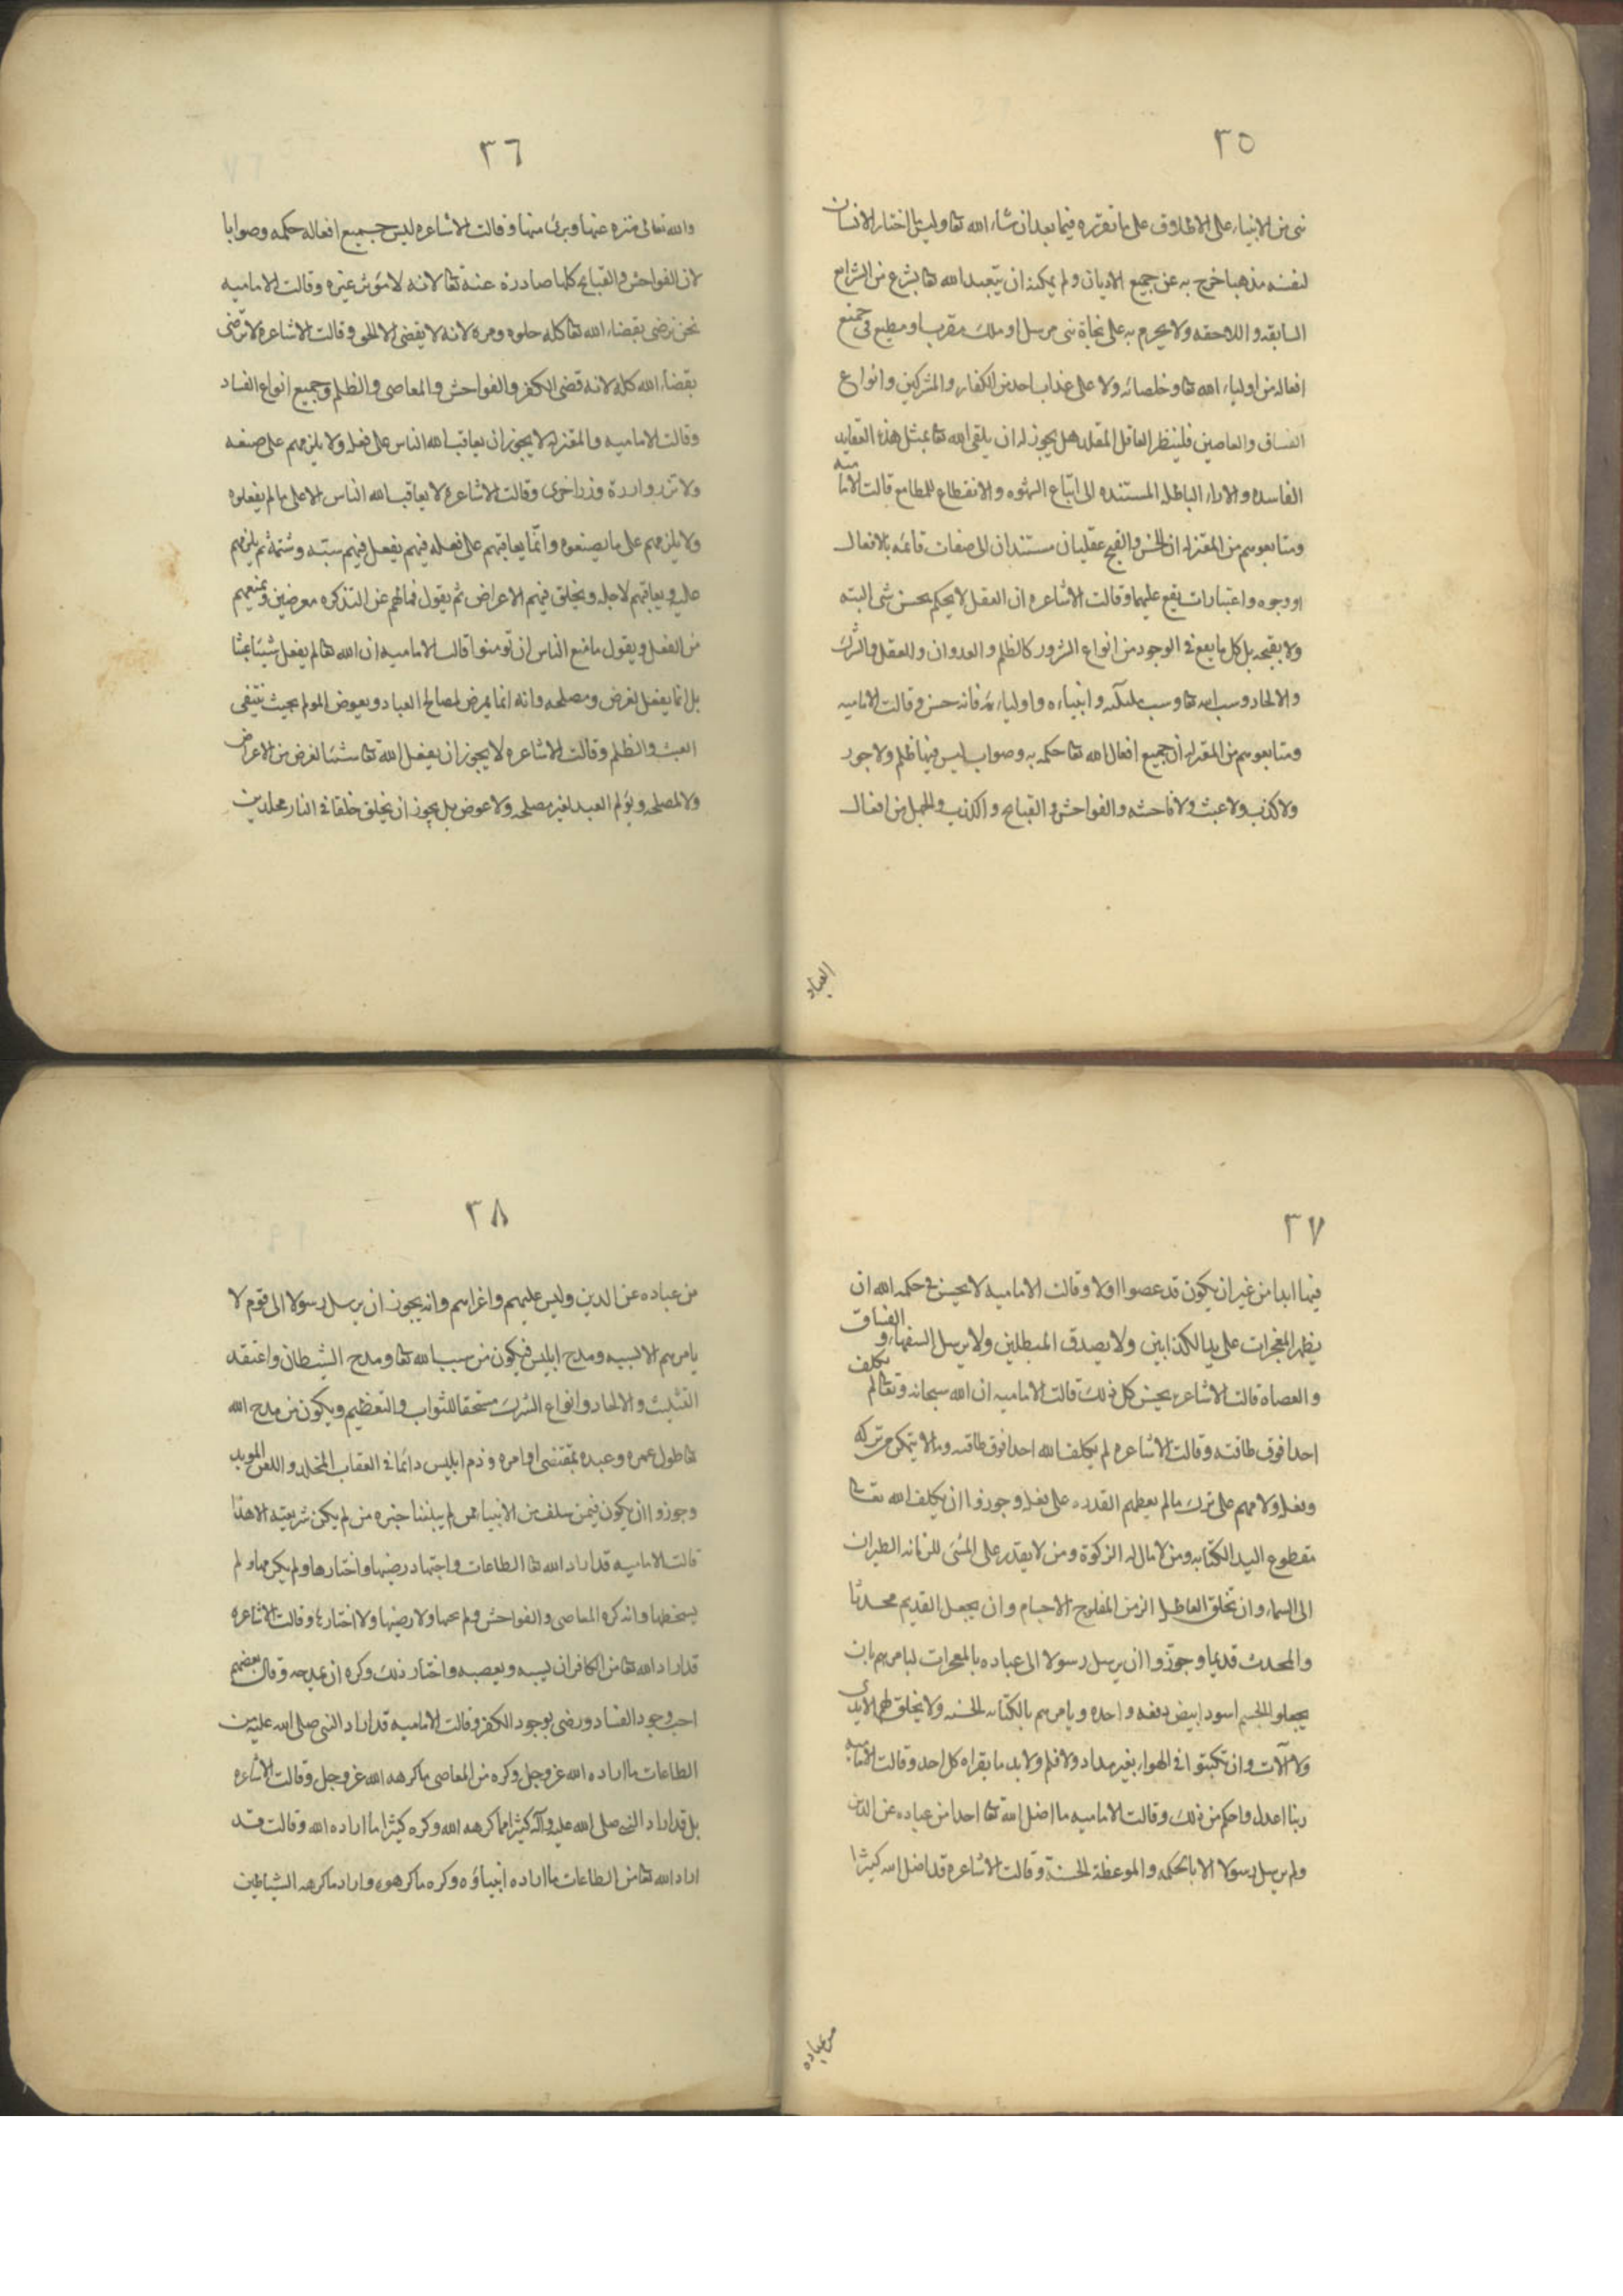 ٣٥
نبى من الانبياء على الاطلاق على ما تقرره فيما بعد ان شاء الله تعا وليت اختار الانسان
لنفسه مذهبا خرج به عن جميع الاديان ولم يمكنه ان يتعبد الله تعا بشرع من الشرايع
السابقه واللاحقه ولا يجزم به على نجاة نبى مرسل او ملك مقرب او مطيع فى جميع
افعاله من اولياء الله تعا وخلصائه ولا على عذاب احد من الكفار والمشركين وانواع
الفساق والعاصين فلينظر العاقل المقلد هل يجوز له ان يلقى الله تعا بمثل هذه العقايد
الفاسده والاراء الباطله المستنده الى اتباع الشهوه والانقطاع للمطامع قالت الاماميه
ومتابعوهم من المعتزله ان الحسن والقبح عقليان مستندان الى صفات قائمه بالافعال
او وجوه واعتبارات يقع عليها وقالت الاشاعره ان العقل لا يحكم بحسن شى البته
ولا بقبحه بل كل ما يقع فى الوجود من انواع الشرور كالظلم والعدوان والقتل والشرك
والالحاد وسب الله تعا وسب ملئكته وانبياءه واولياءه فانه حسن وقالت الاماميه
ومتابعوهم من المعتزله ان جميع افعال الله تعا حكمه وصواب ليس فيها ظلم ولا جور
ولا كذب ولا عبث ولا فاحشه والفواحش والقبايح والكذب والجهل من افعال
العباد
٣٦
والله تعالى منزه عنها وبرئ منها وقالت الاشاعره ليس جميع افعاله حكمه وصوابا
لان الفواحش والقبايح كلها صادرة عنه تعا لانه لا مؤثر غيره وقالت الاماميه
نحن نرضى بقضاء الله تعا كله حلوه ومره لانه لا يقضى الا الحق وقالت الاشاعره لا نرضى
بقضاء الله كله لانه قضى الكفر والفواحش والمعاصى والظلم وجميع انواع الفساد
وقالت الاماميه والمعتزله لا يجوز ان يعاقب الله الناس على فعله ولا يلومهم على صنعه
ولا تزر وازرة وزر اخرى وقالت الاشاعره لا يعاقب الله الناس الا على ما لم يفعلوه
ولا يلومهم على ما يصنعوه وانما يعاقبهم على فعله فيهم يفعل فيهم سبه وشتمه ثم يلومهم
عليه ويعاقبهم لاجله ويخلق فيهم الاعراض ثم يقول فما لهم عن التذكره معرضين ويمنعهم
من الفعل ويقول ما منع الناس ان تؤمنوا قالت الاماميه ان الله تعا لم يفعل شيئا عبثا
بل انما يفعل لغرض ومصلحه وانه انما يمرض لمصالح العباد ويعوض المولم بحيث ينتفى
العبث والظلم وقالت الاشاعره لا يجوز ان يفعل الله تعا شيئا لغرض من الاعراض
ولا لمصلحه ويؤلم العبد لغير مصلحه ولا عوض بل يجوز ان يخلق خلقا فى النار مخلدين
٣٧
فيها ابدا من غير ان يكون قد عصوا اولا وقالت الاماميه لا يحسن فى حكمه الله ان
يظهر المعجزات على يد الكذابين ولا يصدق المبطلين ولا يرسل السفهاء والفساق
والعصاه قالت الاشاعره يحسن كل ذلك قالت الاماميه ان الله سبحانه وتعا لم يكلف
احدا فوق طاقته وقالت الاشاعره لم يكلف الله احدا فوق طاقته وما لا يتمكن من تركه
وفعله ولامهم على ترك ما لم يعطهم القدره على فعله وجوزوا ان يكلف الله تعا
مقطوع اليد الكتابه ومن لا مال له الزكوة ومن لا يقدر على المشى للزمانه الطيران
الى السماء وان يخلق العاطل الزمن المفلوج الاجسام وان يجعل القديم محدثا
والمحدث قديما وجوزوا ان يرسل رسولا الى عباده بالمعجزات ليامرهم بان
يجعلوا الجسم اسود ابيض دفعه واحده ويامرهم بالكتابه الحسنه ولا يخلق لهم الايدى
ولا آلات وان يكتبوا فى الهواء بغير مداد ولا قلم ولا يد ما يقراه كل احد وقالت الاماميه
ربنا اعدل واحكم من ذلك وقالت الاماميه ما اضل الله تعا احدا من عباده عن الدين
ولم يرسل رسولا الا بالحكمه والموعظة الحسنة وقالت الاشاعره قد اضل الله كثيرا
من عباده
٣٨
من عباده عن الدين ولبس عليهم واغراهم وانه يجوز ان يرسل رسولا الى قوم لا
يامرهم الا بسبه ومدح ابليس فيكون من سب الله تعا ومدح الشيطان واعتقد
التثليث والالحاد وانواع الشرك مستحقا للثواب والتعظيم ويكون من مدح الله
تعا طول عمره وعبده بمقتضى اوامره وذم ابليس دائما فى العقاب المخلد واللعن الموبد
وجوزوا ان يكون فيمن سلف من الانبياء ممن لم يبلغنا خبره من لم يكن شريعته الا هذا
قالت الاماميه قد اراد الله تعا الطاعات واجتهاد رضيها واختارها ولم يكرهها ولم
يسخطها وانه كره المعاصى والفواحش ولم يحبها ولا رضيها ولا اختارها وقالت الاشاعره
قد اراد الله تعا من الكافر ان يسبه ويعصيه واختار ذلك وكره ان يمدحه وقال بعضهم
احب وجود الفساد ورضى بوجود الكفر وقالت الاماميه قد اراد النبى صلى الله عليه من
الطاعات ما اراده الله عز وجل وكره من المعاصى ما كرهه الله عز وجل وقالت الاشاعره
بل قد اراد النبى صلى الله عليه وآله كثيرا مما كرهه الله وكره كثيرا مما اراده الله وقالت قد
اراد الله تعا من الطاعات ما اراده انبياؤه وكره ما كرهوه واراد ما كرهه الشياطين